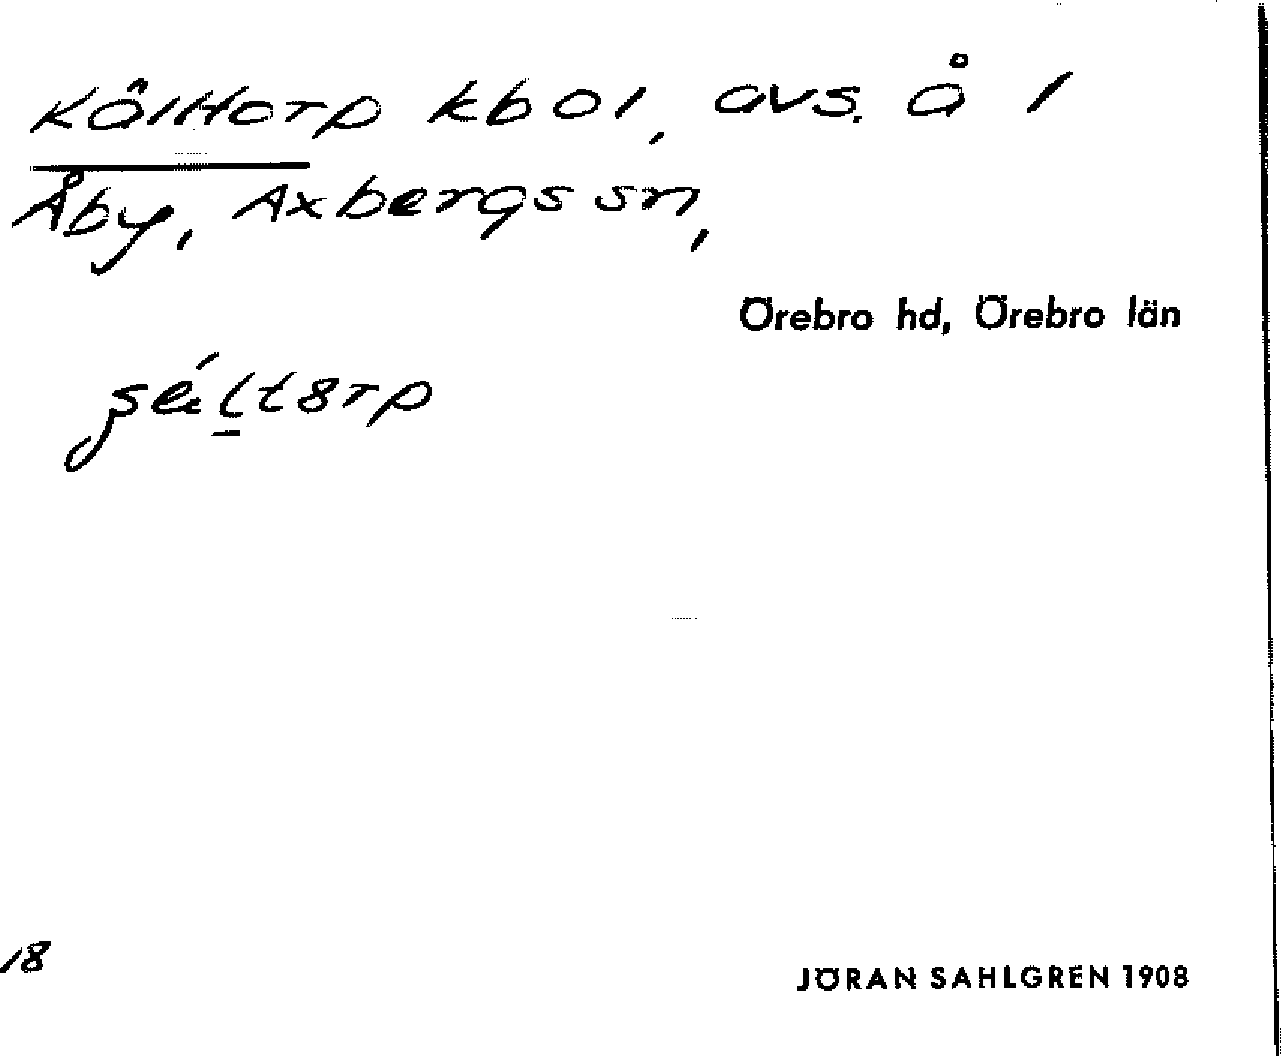 Källtorp kbol, avs. å 1
Åby, Axbergs sn,
Örebro hd, Örebro län
18
JÖRAN SAHLGREN 1908